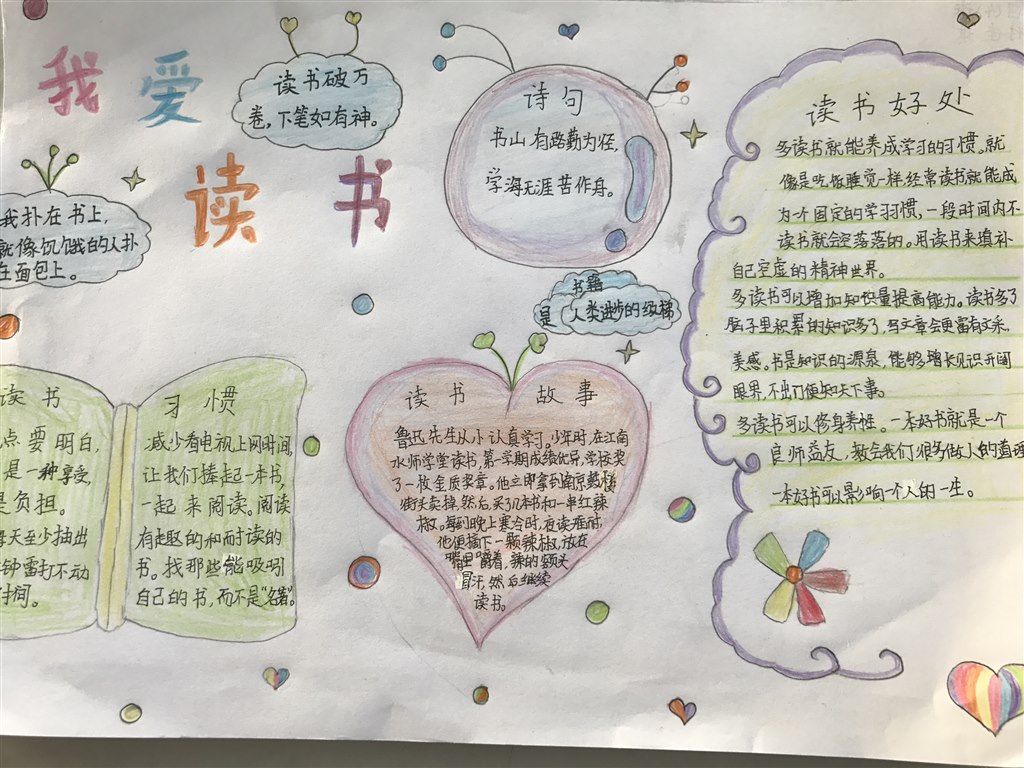 我爱
读书
读书破万
卷,下笔如有神。
我扑在书上,
就像饥饿的人扑
在面包上。
诗句
书山有路勤为径,
学海无涯苦作舟。
书籍
是人类进步的级梯
读书 习惯
点要明白,
是一种享受,
是负担。
每天至少抽出
钟雷打不动
时间。
减少看电视上网时间,
让我们捧起一本书,
一起来阅读。阅读
有趣的和耐读的
书。找那些能吸引
自己的书,而不是“名著”。
读书 故事
鲁迅先生从小认真学习。少年时,在江南
水师学堂读书,第一学期成绩优异,学校奖
了一枚金质奖章。他立即拿到南京鼓楼
街头卖掉,然后买几本书和一串红辣
椒。每到晚上寒冷时,夜读难耐
他便摘下一颗辣椒,放在
嘴里嚼着,辣的额头
冒汗,然后继续
读书。
读书好处
多读书就能养成学习的习惯。就
像是吃饭睡觉一样经常读书就能成
为一个固定的学习习惯,一段时间内不
读书就会空落落的。用读书来填补
自己空虚的精神世界。
多读书可以增加知识量提高能力。读书多了
脑子里积累的知识多了,写文章会更富有文采,
美感。书是知识的源泉,能够增长见识开阔
眼界,不出门便知天下事。
多读书可以修身养性。一本好书就是一个
良师益友,教会我们很多做人的道理
一本好书可以影响一个人的一生。